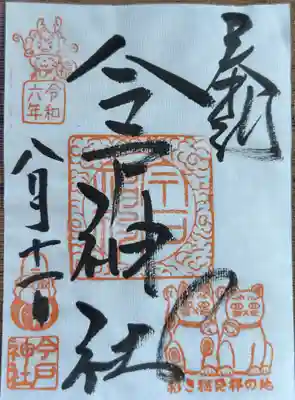 奉拝
今戸神社
令和
六年
八月十一日
今戸
神社
招き猫発祥の地